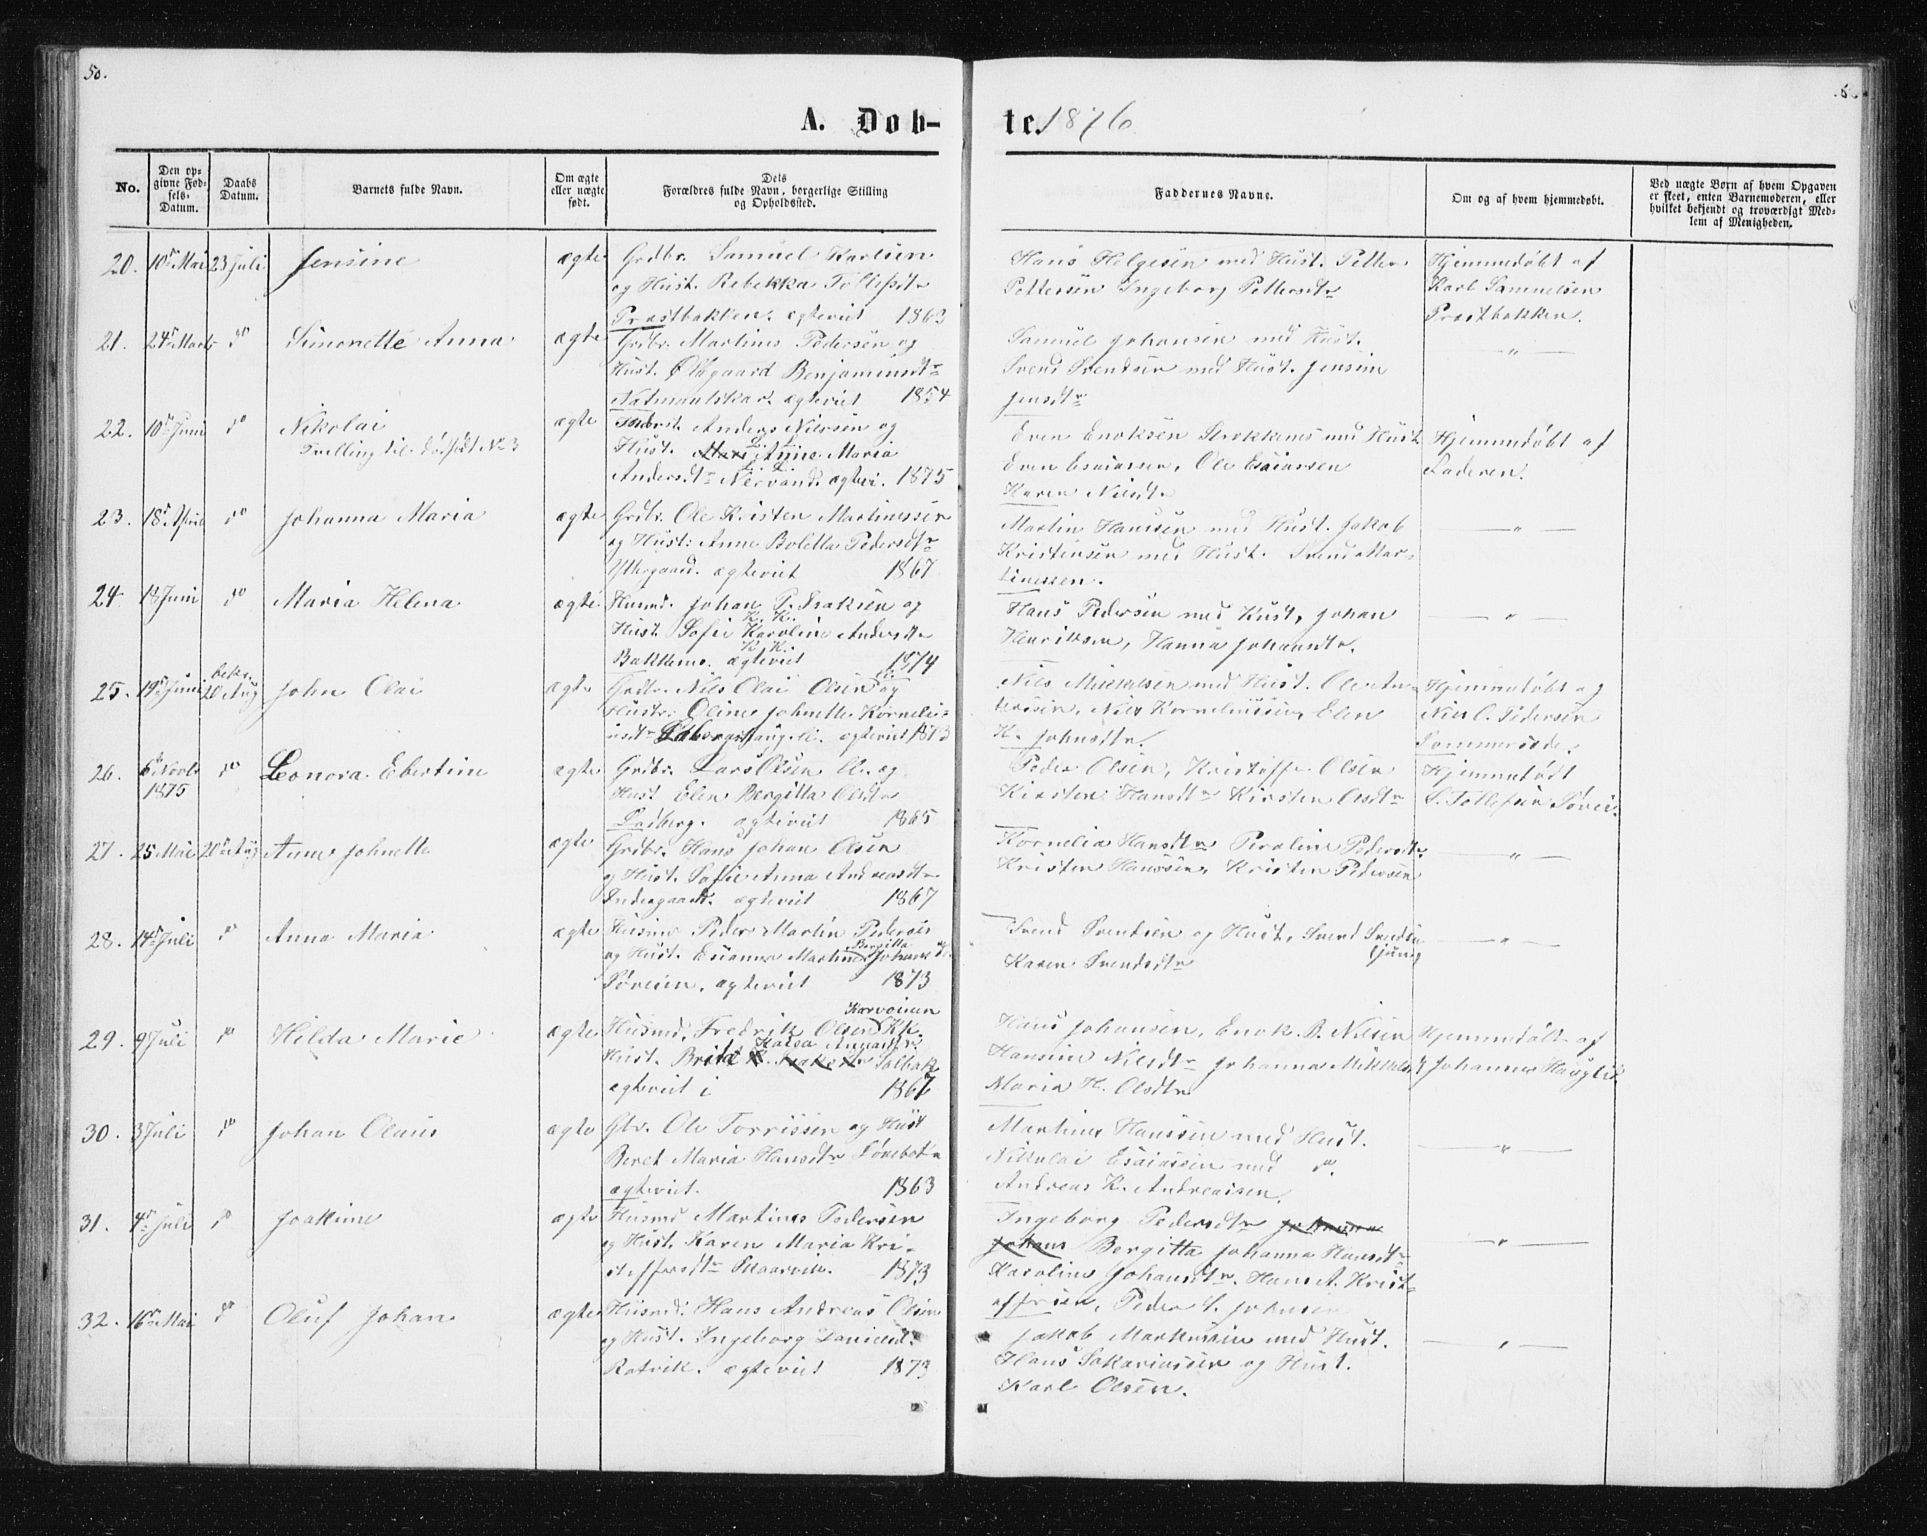 50.
A. Döb-
te. 1876
No.
Den op-
givne Fød-
sels-
Datum.
Daabs
Datum.
Barnets fulde Navn.
Om ægte
eller uægte
født.
Dets
Forældres fulde Navn, borgerlige Stilling
og Opholdssted.
Faddernes Navne.
Om og af hvem hjemmedøbt.
Ved uægte Børn af hvem Opgaven
er skeet, enten Barnemoderen, eller
hvilket bekjendt og troværdigt Med-
lem af Menigheden.
20. 10de Mai 23 Juli Jensine ægte Grdbr. Samuel Karlsen
og Hust. Rebekka Tollefsdtr
Præstbakken. ægteviet 1863
Hans Helgesen med Hust. Petter
Pettersen Ingeborg Pettersdtr
Hjemmedøbt af
Karl Samuelsen
Præstbakken.
21. 24de Marts do Simonette Anna ægte Grdbr. Martinus Pedersen og
Hust. Ølegaard Benjaminsdtr
ægteviet 1854
Samuel Johansen med Hust.
Svend Svendsen med Hust. Jensine
Jensdtr
— " —
22. 10de Juni do Nikolai
Tvilling til dødfødt No 3
ægte Inderst. Anders Nilsen og
Hust. Anne Maria
Andersdtr Nervand. ægtev. 1875
Even Enoksen med Hust
Even Esaiassen, Ole Esaiassen
Karen Nilsdtr
Hjemmedøbt af
Faderen.
23. 18de April do Johanna Maria ægte Grdbr. Ole Kristen Martinussen
og Hust: Anne Boletta Pedersdtr
Yttergaard. ægteviet 1867
Martin Hanssen med Hust. Jakob
Kristensen med Hust. Svend Mar-
tinussen.
— " —
24. 18 Juni do Maria Helena ægte Husmd. Johan P. Isaksen og
Hust. Sofie Karolin Andersdtr
Bakkemo. ægteviet 1874
Hans Pedersen med Hust, Johan
Henriksen, Hanna Johannsdtr.
— " —
25. 19de Juni bekr.
20 Aug John Olai ægte Grdbr. Nils Olai Olsen og
Hustr: Oline Johnette Korneli-
usdtr ægteviet 1873
Nils Mikkelsen med Hust. Ole An-
dersen, Nils Korneliussen, Elen
K. Johnsdtr.
Hjemmedøbt af
Niel C. Pedersen
26. 6te Novbr
1875 do Leonora Ebertine ægte Grdbr. Lars Olsen og
Hust Elen Bergitta Olsdtr
Ladberg. ægteviet 1865
Peder Olsen, Kristoffer Olsen
Kirsten Hansdtr Kirsten Olsdtr
Hjemmedøbt
S. Tollefsen
27. 25 Mai 20de Aug Anne Johnette ægte Grdbr. Hans Johan Olsen
og Hust. Sofie Anna Andreasdtr
Indergaard. ægteviet 1867
Kornelia Hansdtr Peroline Pedersdtr.
Kristen Hanssen, Kristen Pedersen
— " —
28. 14de Juli do Anna Maria ægte Husmd Peder Martin Pedersen
og Hust. Esianna Martine Bergitta Johansdtr
Søveien. ægteviet 1873
Svend Svendsen og Hust, Svend Svendsen
(jun)
Karen Svendsdtr
— " —
29. 9 Juli do Hilda Marie ægte Husmd. Fredrik Olsen Karvonen Kk.
Hust. Brita Kaisa Solbak
ægteviet i 1867
Hans Johansen, Enok B. Nilsen
Hansine Nilsdtr Johanna Mikkelsdtr
Maria H. Olsdtr
Hjemmedøbt af
Johannes
30. 3 Juli do Johan Olaus ægte Gbr. Ole Torrissen og Hust
Beret Maria Hansdtr
ægteviet. 1863
Martinus Hanssen med Hust.
Nikolai Esaiassen med do.
Andreas K. Andreassen.
— " —
31. 4de Juli do Joakime ægte Husmd Martinus Pedersen
og Hust. Karen Maria Kri-
stoffersdtr Skaarvik. 1873
Ingeborg Pedersdtr
Bergitta Johanna Hansdtr
Karoline Johansdtr. Hans A. Krist-
offersen, Peder S. Johnsen
— " —
32. 16de Mai do Oluf Johan ægte Husmd. Hans Andreas Olsen
og Hust. Ingeborg Danielsd.
Rotvik. ægteviet 1873
Jakob Markussen med Hust.
Hans Sakariassen og Hust.
Karl Olsen.
— " —